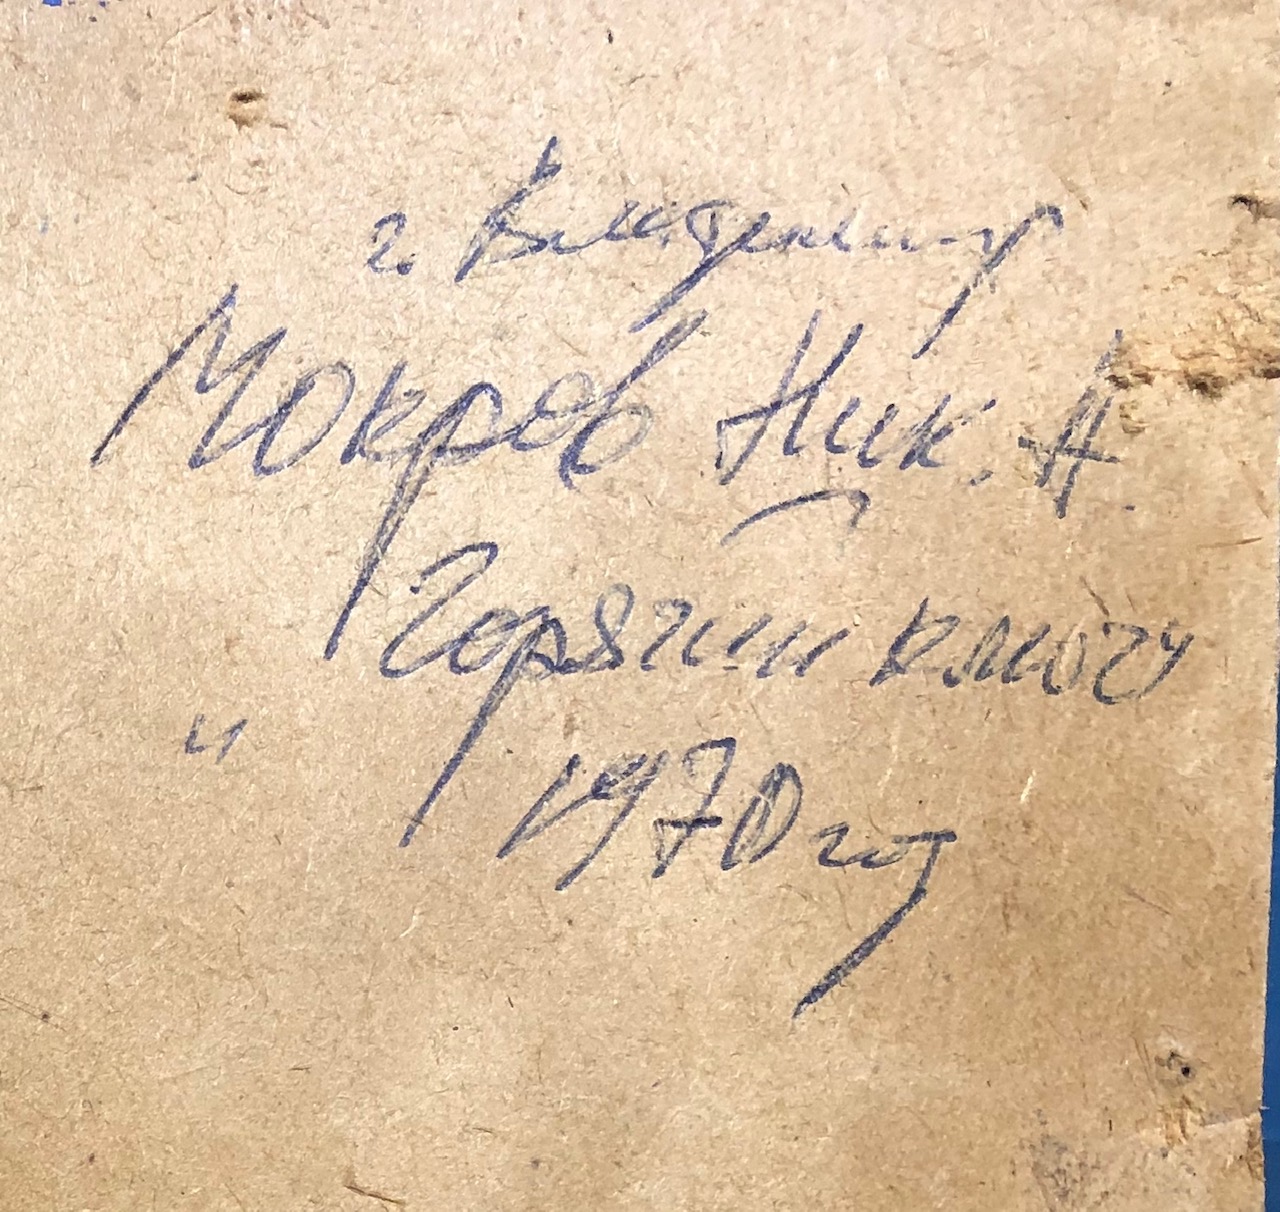 г. Владимир
Мокров Ник. А.
"Горячий ключ"
1970 год